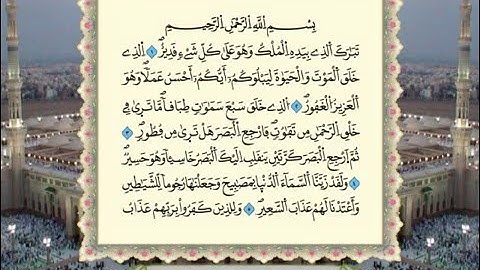 بِسْمِ اللَّهِ الرَّحْمَٰنِ الرَّحِيمِ
تَبَارَكَ الَّذِي بِيَدِهِ الْمُلْكُ وَهُوَ عَلَىٰ كُلِّ شَيْءٍ قَدِيرٌ ١ الَّذِي
خَلَقَ الْمَوْتَ وَالْحَيَاةَ لِيَبْلُوَكُمْ أَيُّكُمْ أَحْسَنُ عَمَلًا وَهُوَ
الْعَزِيزُ الْغَفُورُ ٢ الَّذِي خَلَقَ سَبْعَ سَمَاوَاتٍ طِبَاقًا مَا تَرَىٰ فِي
خَلْقِ الرَّحْمَٰنِ مِنْ تَفَاوُتٍ فَارْجِعِ الْبَصَرَ هَلْ تَرَىٰ مِنْ فُطُورٍ
ثُمَّ ارْجِعِ الْبَصَرَ كَرَّتَيْنِ يَنْقَلِبْ إِلَيْكَ الْبَصَرُ خَاسِيًا وَهُوَ حَسِيرٌ
وَلَقَدْ زَيَّنَّا السَّمَاءَ الدُّنْيَا بِمَصَابِيحَ وَجَعَلْنَاهَا رُجُومًا لِلشَّيَاطِينِ
وَأَعْتَدْنَا لَهُمْ عَذَابَ السَّعِيرِ وَلِلَّذِينَ كَفَرُوا بِرَبِّهِمْ عَذَابُ